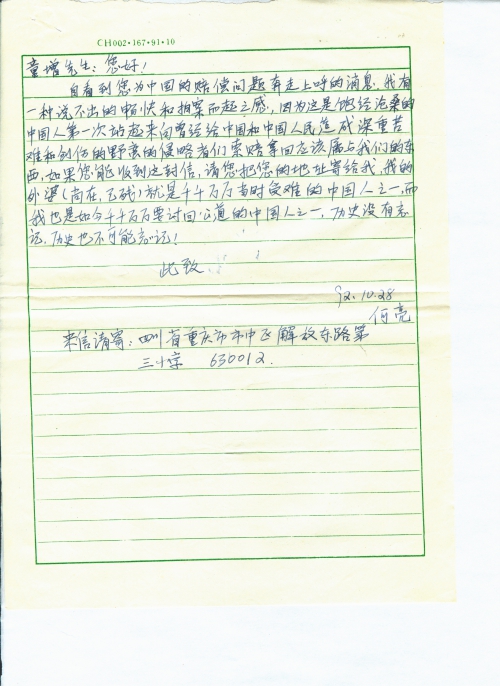 CH002·167·91·10
童增先生：您好！
自看到您为中国的赔偿问题奔走上呼的消息，我有
一种说不出的畅快和拍案而起之感，因为这是饱经沧桑的
中国人第一次站起来向曾经给中国和中国人民造成深重苦
难和创伤的野蛮的侵略者们索赔拿回应该属占我们的东
西，如果您能收到这封信，请您把您的地址寄给我，我的
外婆（尚在，已残）就是千千万万当时受难的中国人之一，而
我也是如今千千万万要讨回公道的中国人之一，历史没有忘
记，历史也不可能忘记！
此致
92.10.28
何亮
来信请寄：四川省重庆市市中区解放东路第
三十 630012.